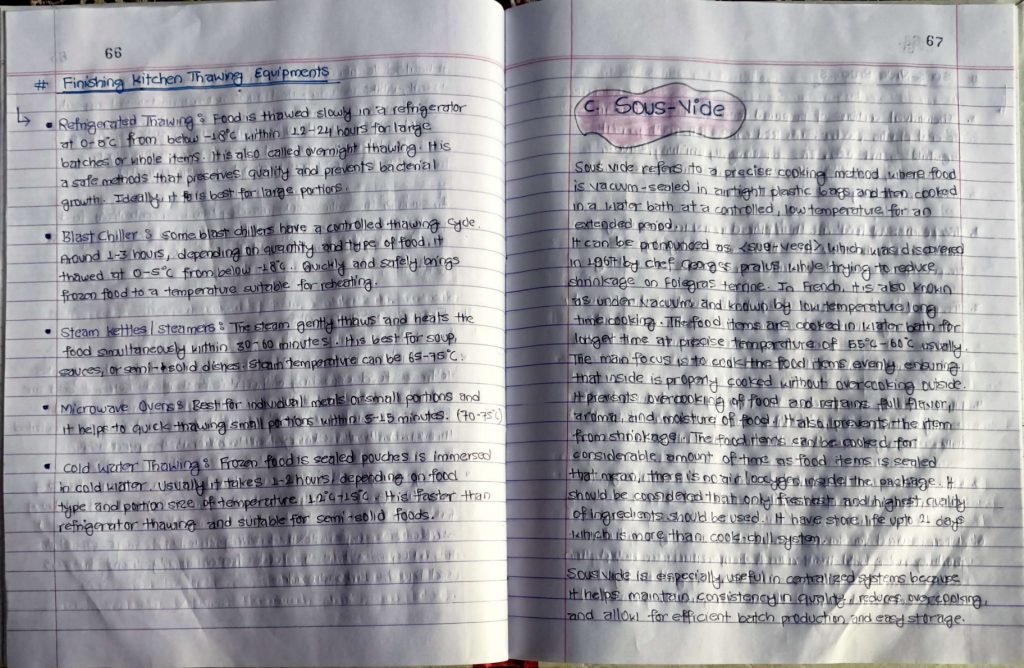 66
# Finishing Kitchen Thawing Equipments
• Refrigerated Thawing : Food is thawed slowly in a refrigerator
at 0-5°c from below -18°c within 12-24 hours for large
batches or whole items. It is also called overnight thawing. It is
a safe methods that preserves quality and prevents bacterial
growth. Ideally, it is best for large portions.
• Blast Chiller : some blast chillers have a controlled thawing cycle.
Around 1-3 hours, depending on quantity and type of food, it
thawed at 0-5°c from below -18°c. Quickly and safely brings
frozen food to a temperature suitable for reheating.
• Steam kettles / steamers : The steam gently thaws and heats the
food simultaneously within 30-60 minutes. It is best for soup,
sauces, or semi-solid dishes. Steam temperature can be 65-75°c.
• Microwave Ovens : Best for individual meals or small portions and
it helps to quick thawing small portions within 5-15 minutes. (70-75°c)
• Cold Water Thawing : Frozen food is sealed pouches is immersed
in cold water. Usually it takes 1-2 hours, depending on food
type and portion size of temperature, 12°c-15°c. It is faster than
refrigerator thawing and suitable for semi-solid foods.
67
C. Sous-Vide
Sous vide refers to a precise cooking method where food
is vacuum-sealed in airtight plastic bags and then cooked
in a water bath at a controlled, low temperature for an
extended period.
It can be pronounced as <sug-veed> which was discovered
in 1967 by chef Georges pralus while trying to reduce
shrinkage on Foiegras terrine. In French, it is also known
as under vacuum and known by low temperature long
time cooking. The food items are cooked in water bath for
longer time at precise temperature of 55°c-60°c usually.
The main focus is to cook the food items evenly, ensuring
that inside is properly cooked without overcooking outside.
It prevents overcooking of food and retains full flavor,
aroma, and moisture of food. It also prevents the item
from shrinkage. The food items can be cooked for
considerable amount of time as food items is sealed
that mean, there is no air / oxygen inside the package. It
should be considered that only freshest and highest quality
of ingredients should be used. It have store life upto 21 days
which is more than cook-chill system.
Sous Vide is especially useful in centralized systems because
it helps maintain consistency in quality, reduces overcooking,
and allow for efficient batch production and easy storage.